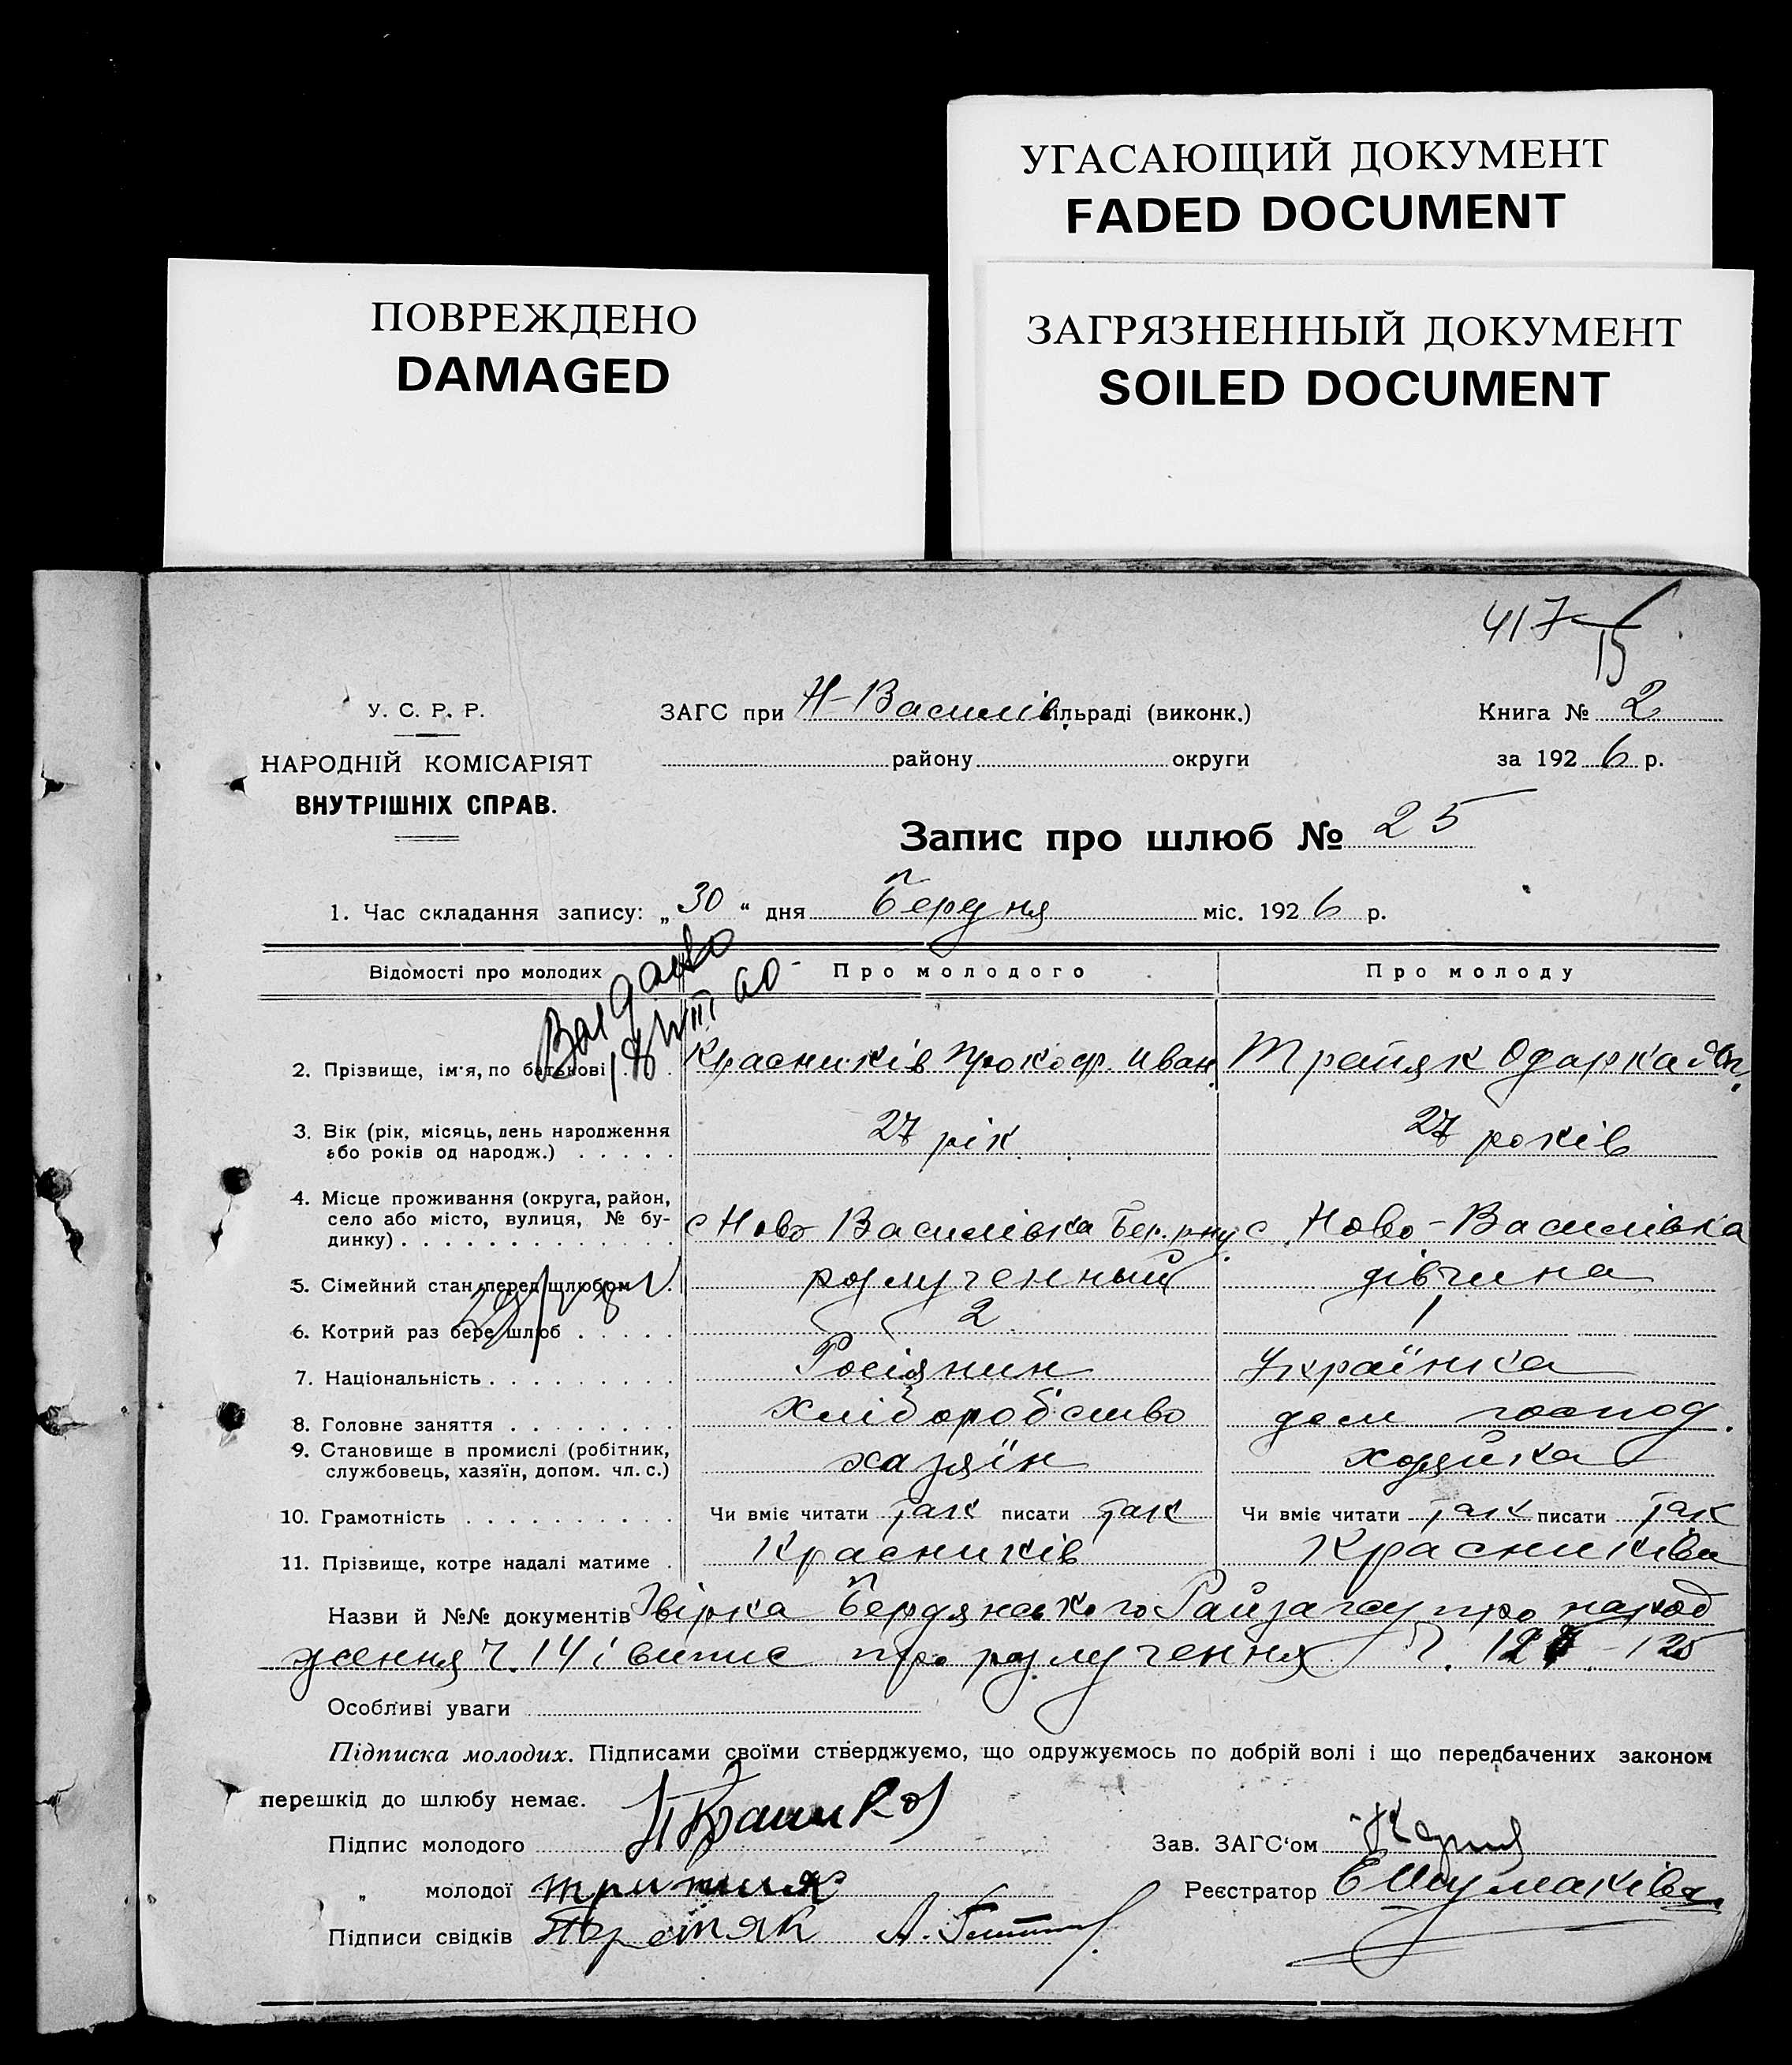 УГАСАЮЩИЙ ДОКУМЕНТ
FADED DOCUMENT
ПОВРЕЖДЕНО
DAMAGED
ЗАГРЯЗНЕННЫЙ ДОКУМЕНТ
SOILED DOCUMENT
417
15
У. С. Р. Р.
НАРОДНІЙ КОМІСАРІЯТ
ВНУТРІШНІХ СПРАВ.
ЗАГС при Н-Василів сільраді (виконк.)
району округи
Книга № 2
за 1926 р.
Запис про шлюб № 25
1. Час складання запису: „30“ дня Березня міс. 1926 р.
Відомості про молодих Про молодого Про молоду
III 60
2. Прізвище, ім'я, по батькові . . . Красників Прокоф. Иван. Третяк Одарка
3. Вік (рік, місяць, день народження або років од народж.) . . . . . 27 рік 27 років
4. Місце проживання (округа, район, село або місто, вулиця, № будинку) . . . . . . . . . . . . . с Ново Василівка Бер. рну с. Ново-Василівка
5. Сімейний стан перед шлюбом . розлученный дівчина
6. Котрий раз бере шлюб . . . . . 2 1
7. Національність . . . . . . . . . Росіянин Українка
8. Головне заняття . . . . . . . . Хліборобство дом господ.
9. Становище в промислі (робітник, службовець, хазяїн, допом. чл. с.) хазяїн хозяйка
10. Грамотність . . . . . . . . . . Чи вміє читати так писати так Чи вміє читати так писати так
11. Прізвище, котре надалі матиме . Красників Красниківа
Назви й №№ документів Звірка Бердянського Райзагсу про народ
ження Ч. 14 і випис про розлучення Ч. 127 - 125
Особливі уваги
Підписка молодих. Підписами своїми стверджуємо, що одружуємось по добрій волі і що передбачених законом
перешкід до шлюбу немає.
Підпис молодого
Зав. ЗАГС'ом
„ молодої
Реєстратор
Підписи свідків Третяк